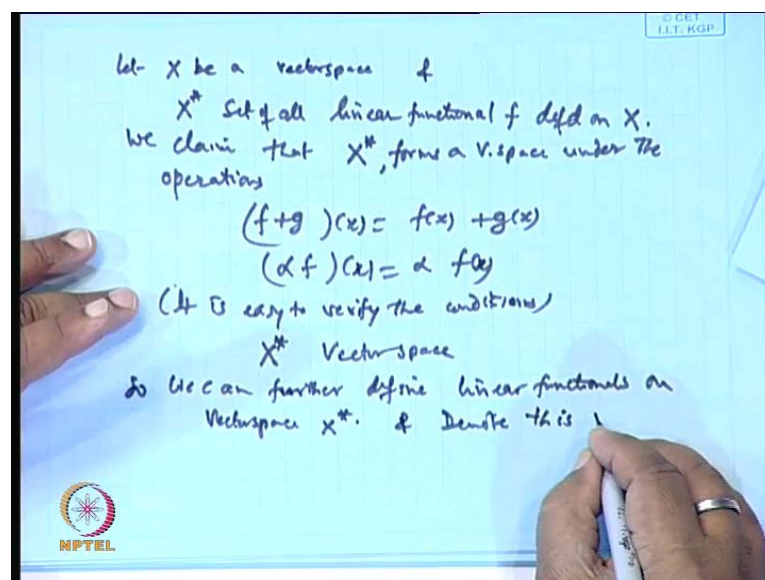 © CET
I.I.T. KGP
Let X be a vectorspace &
X* Set of all linear functional f defd on X.
We claim that X*, forms a V. space under the
operations
(f+g)(x) = f(x) + g(x)
(αf)(x) = α f(x)
(It is easy to verify the conditions)
X* Vectorspace
So we can further define linear functionals on
Vectorspace X*. & Denote this
NPTEL